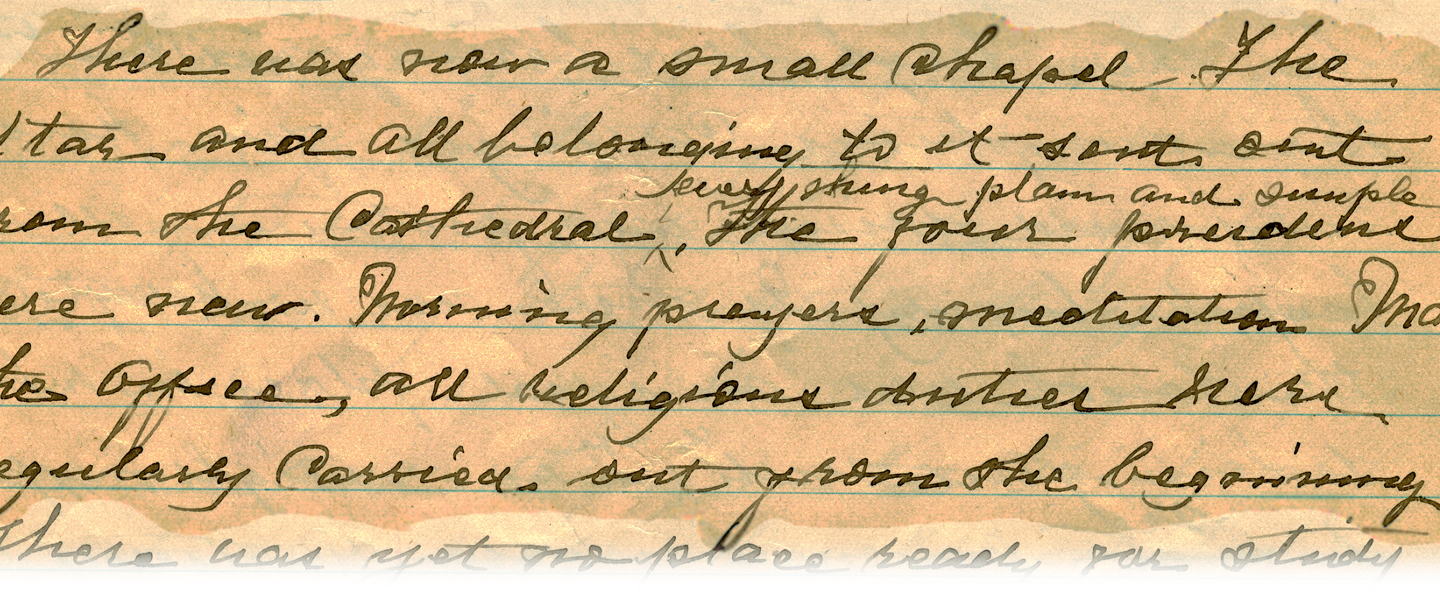 There was now a small Chapel. The
ltar and all belonging to it sent out
everything plain and simple
rom the Cathedral, The four
ere now. Morning prayers, meditation Ma
he Office, all religious duties were
egularly Carried out from the beginning
There was yet no place ready for study